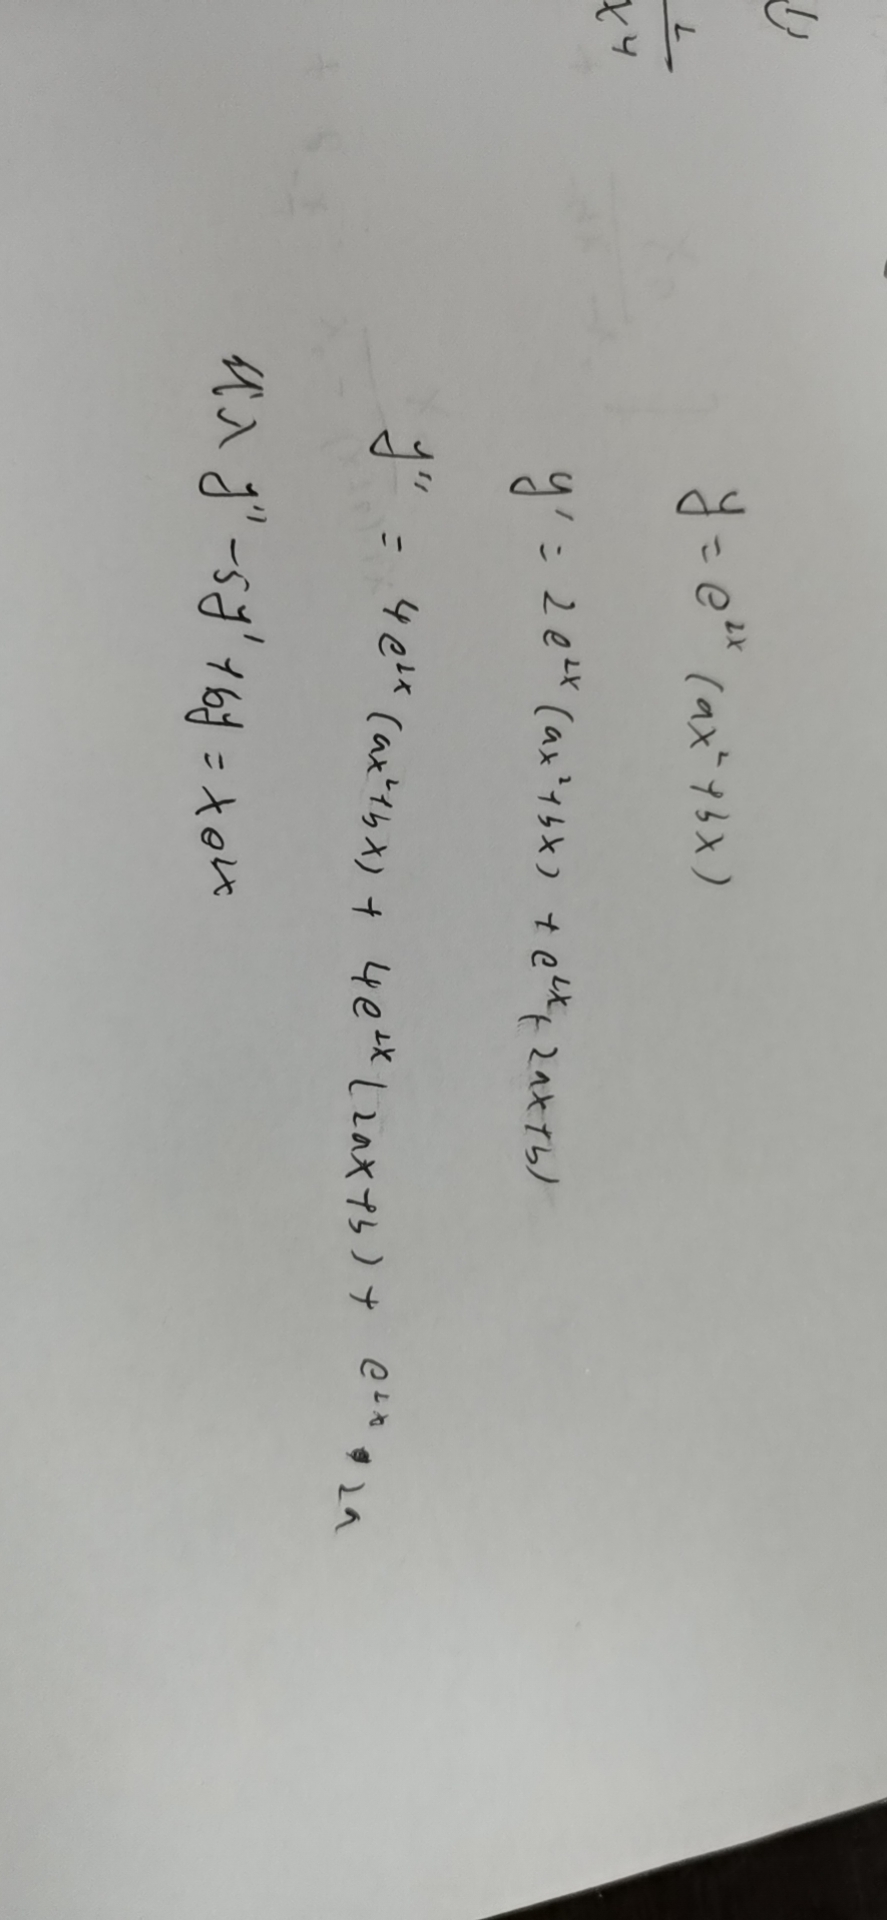 y = e^{2x} (ax² + bx)
y' = 2e^{2x} (ax² + bx) + e^{2x} (2ax + b)
y'' = 4e^{2x} (ax² + bx) + 4e^{2x} (2ax + b) + e^{2x} · 2a
代入 y'' - 5y' + 6y = xe^{2x}